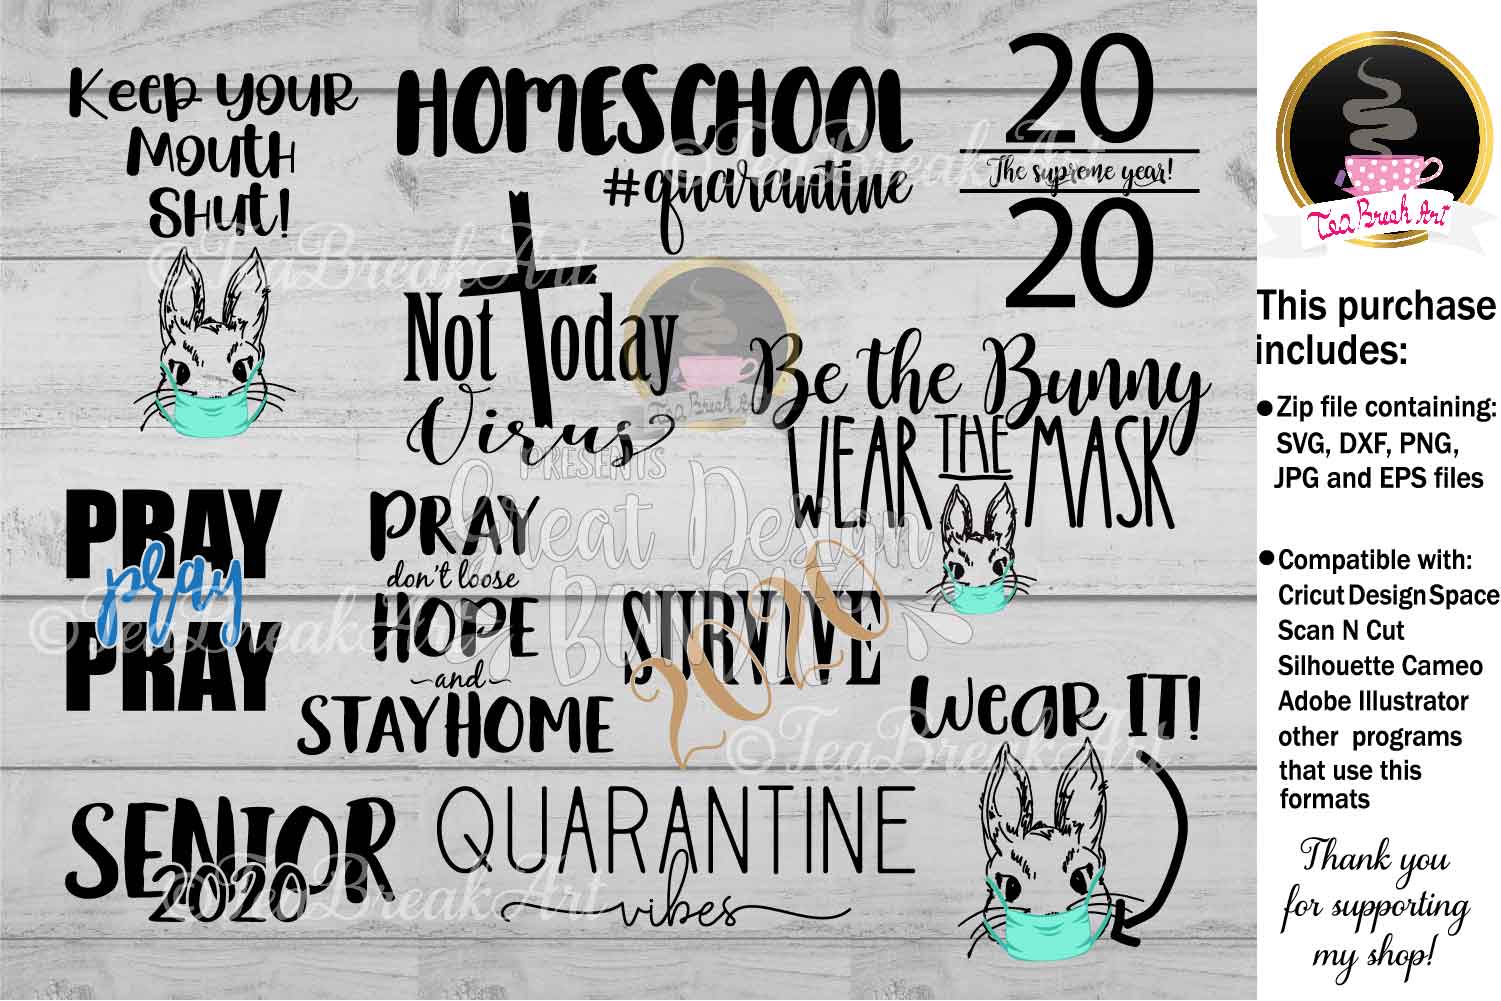 Keep your
Mouth
Shut!
HOMESCHOOL
#quarantine
20
The supreme year!
20
Not Today
Virus
Be the Bunny
WEAR THE MASK
PRAY
pray
PRAY
PRAY
don't loose
HOPE
and
STAY HOME
SURVIVE
2020
Wear IT!
SENIOR
2020
QUARANTINE
vibes
©TeaBreakArt
©TeaBreakArt
©TeaBreakArt
©TeaBreakArt
©TeaBreakArt
Tea Break Art
PRESENTS
Great Design
BUNDLE
Tea Break Art
This purchase
includes:
●Zip file containing:
SVG, DXF, PNG,
JPG and EPS files
●Compatible with:
Cricut Design Space
Scan N Cut
Silhouette Cameo
Adobe Illustrator
other programs
that use this
formats
Thank you
for supporting
my shop!